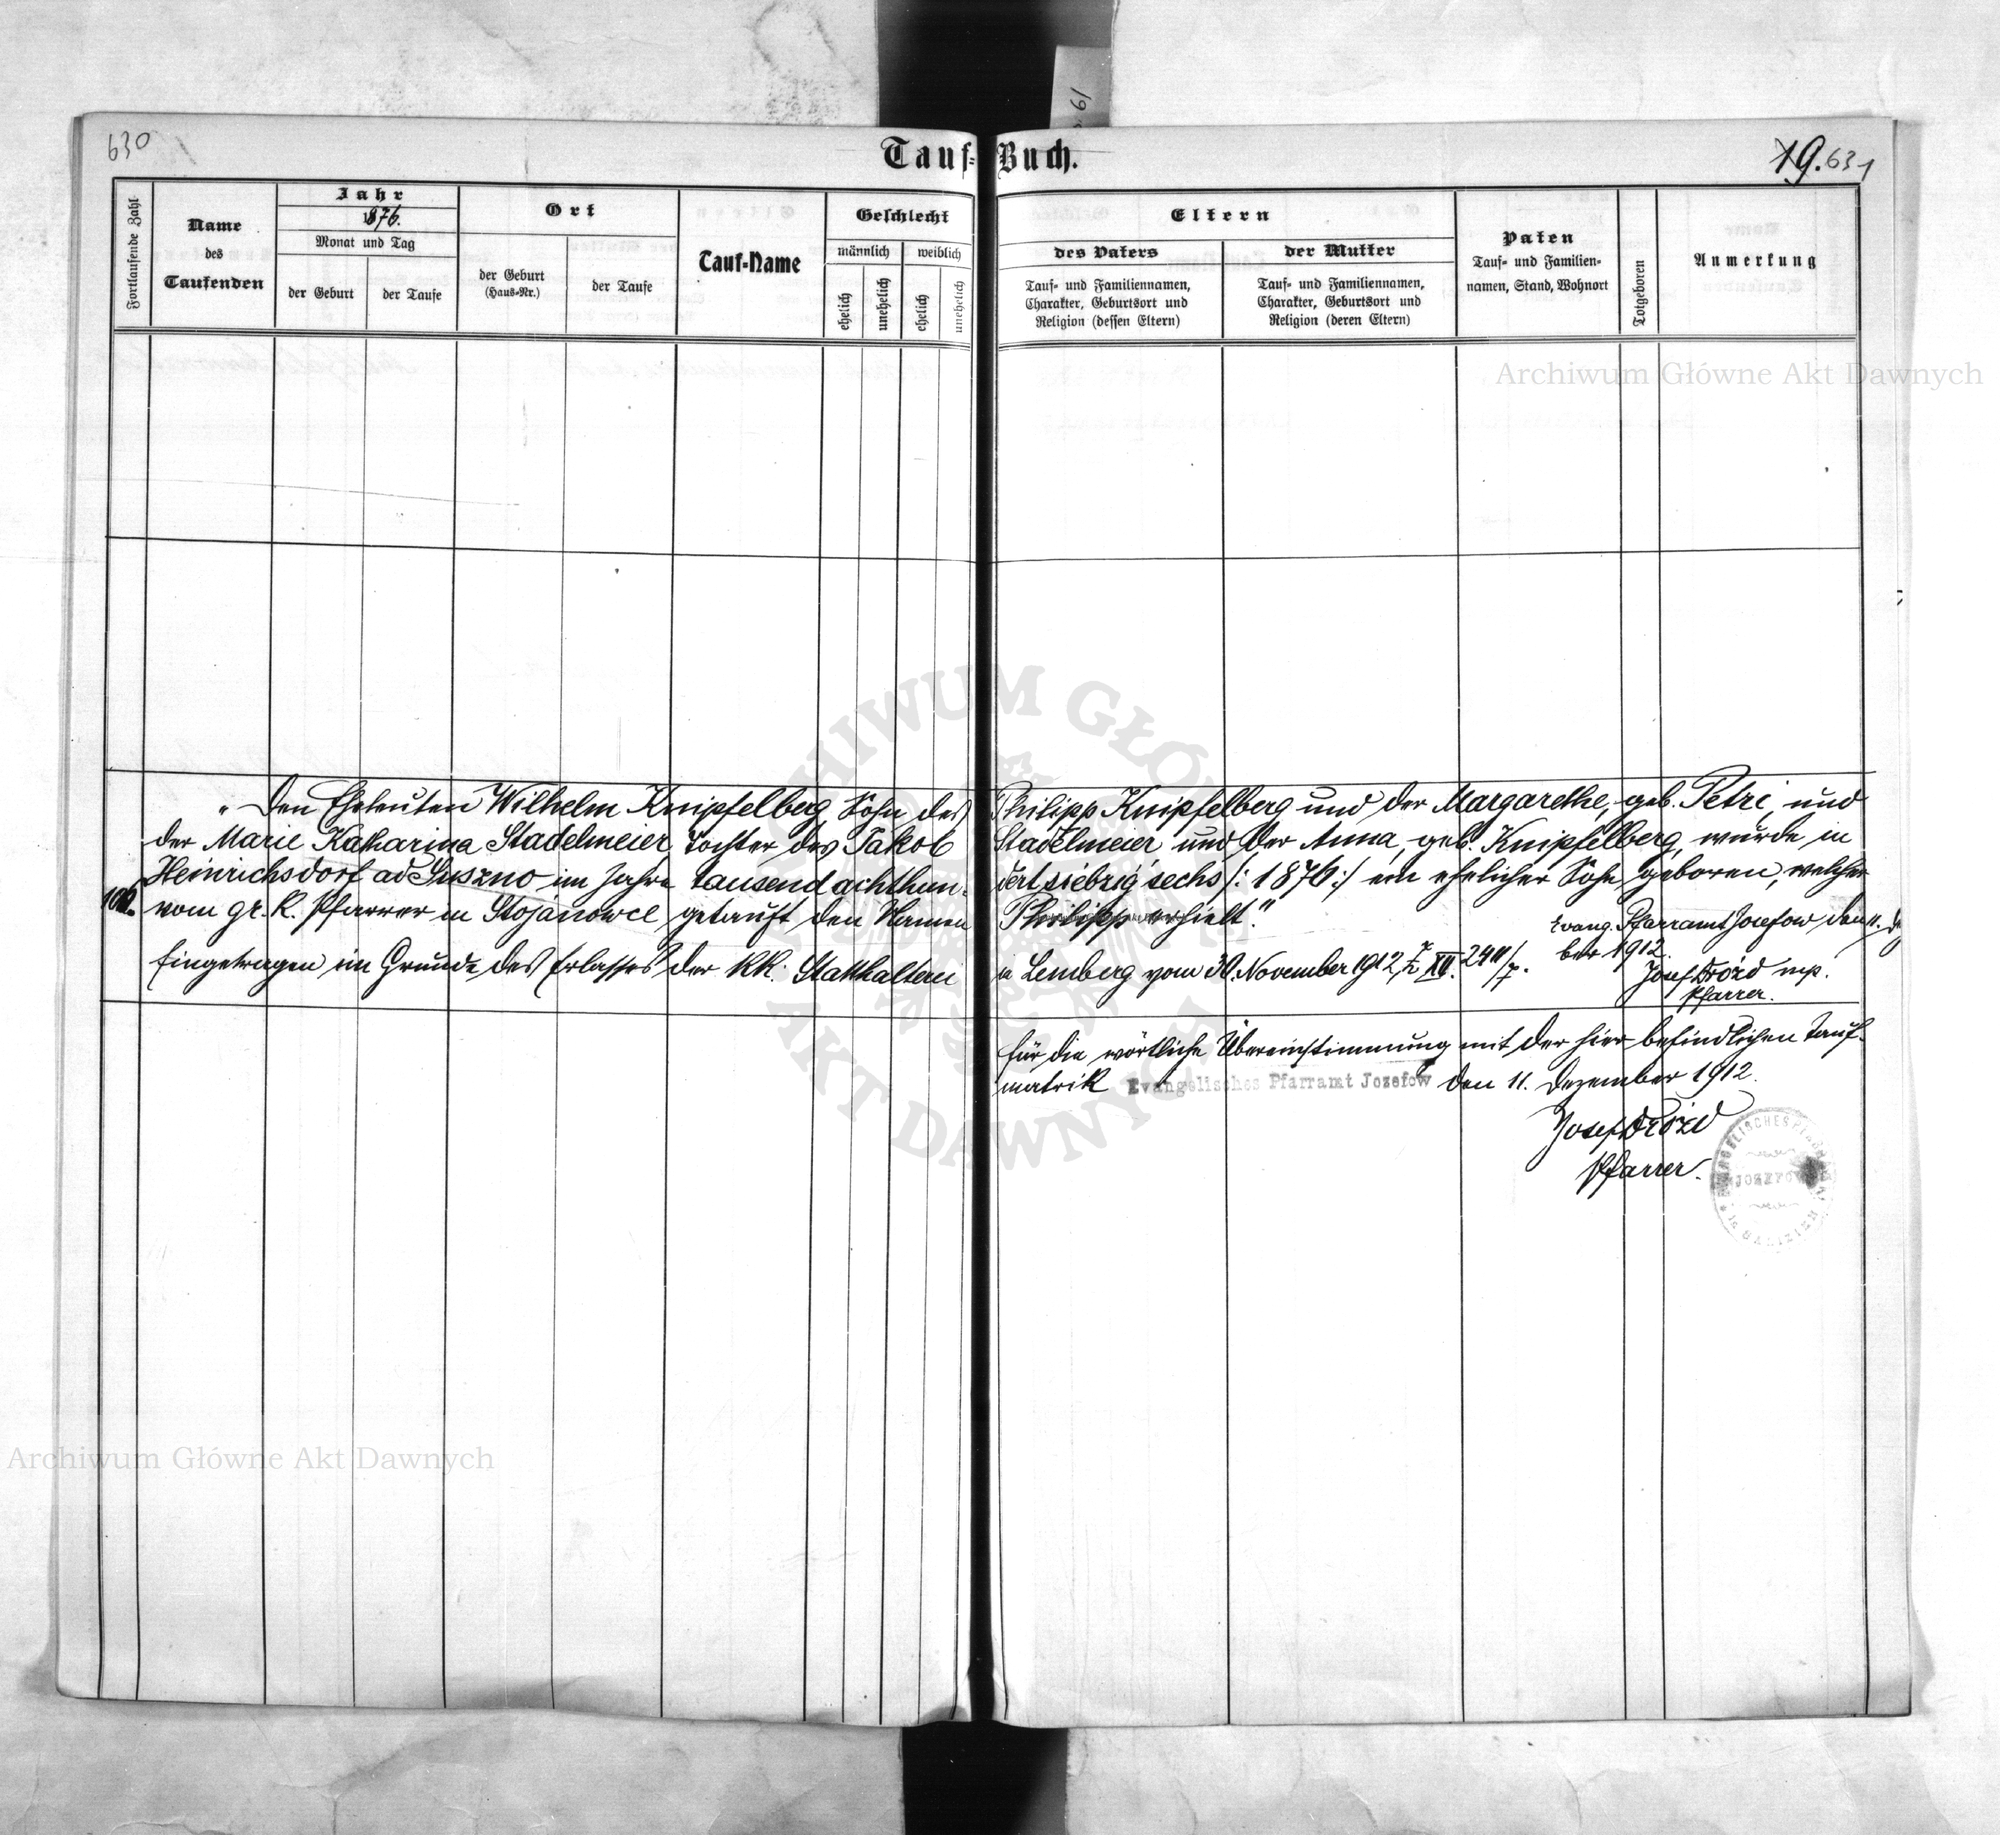 630
Tauf-Buch.
19. 631
Fortlaufende Zahl
Name des Taufenden
Jahr
1876.
Monat und Tag
der Geburt
der Taufe
Ort
der Geburt (Haus-Nr.)
der Taufe
Tauf-Name
Geschlecht
männlich
weiblich
ehelich
unehelich
ehelich
unehelich
Eltern
des Vaters
Tauf- und Familiennamen,
Charakter, Geburtsort und
Religion (dessen Eltern)
der Mutter
Tauf- und Familiennamen,
Charakter, Geburtsort und
Religion (deren Eltern)
Paten
Tauf- und Familien-
namen, Stand, Wohnort
Totgeboren
Anmerkung
Archiwum Główne Akt Dawnych
„Den Eheleuten Wilhelm Knipfelberg, Sohn des Philipp Knipfelberg und der Margarethe, geb. Petri, und
der Marie Katharina Stadelmeier, Tochter des Jakob Stadelmeier und der Anna, geb. Knipfelberg, wurde in
Heinrichsdorf ad Suszno im Jahre tausend achthun-dert siebzig sechs /:1876:/ ein ehelicher Sohn geboren, welcher
vom gr. k. Pfarrer in Stojanowce getauft den Namen Philipp erhielt."
Evang. Pfarramt Josefow den 11. De
ber 1912.
Eingetragen im Grunde des Erlasses der k.k. Statthalterei in Lemberg vom 30. November 1912, Z. XIII. 2411/7.
Josef Drózd mp.
Pfarrer.
Für die wörtliche Übereinstimmung mit der hier befindlichen Tauf-
matrik Evangelisches Pfarramt Jozefow den 11. Dezember 1912.
Josef Drózd
Pfarrer.
JOZEFOW
ARCHIWUM GŁÓWNE
AKT DAWNYCH
Archiwum Główne Akt Dawnych